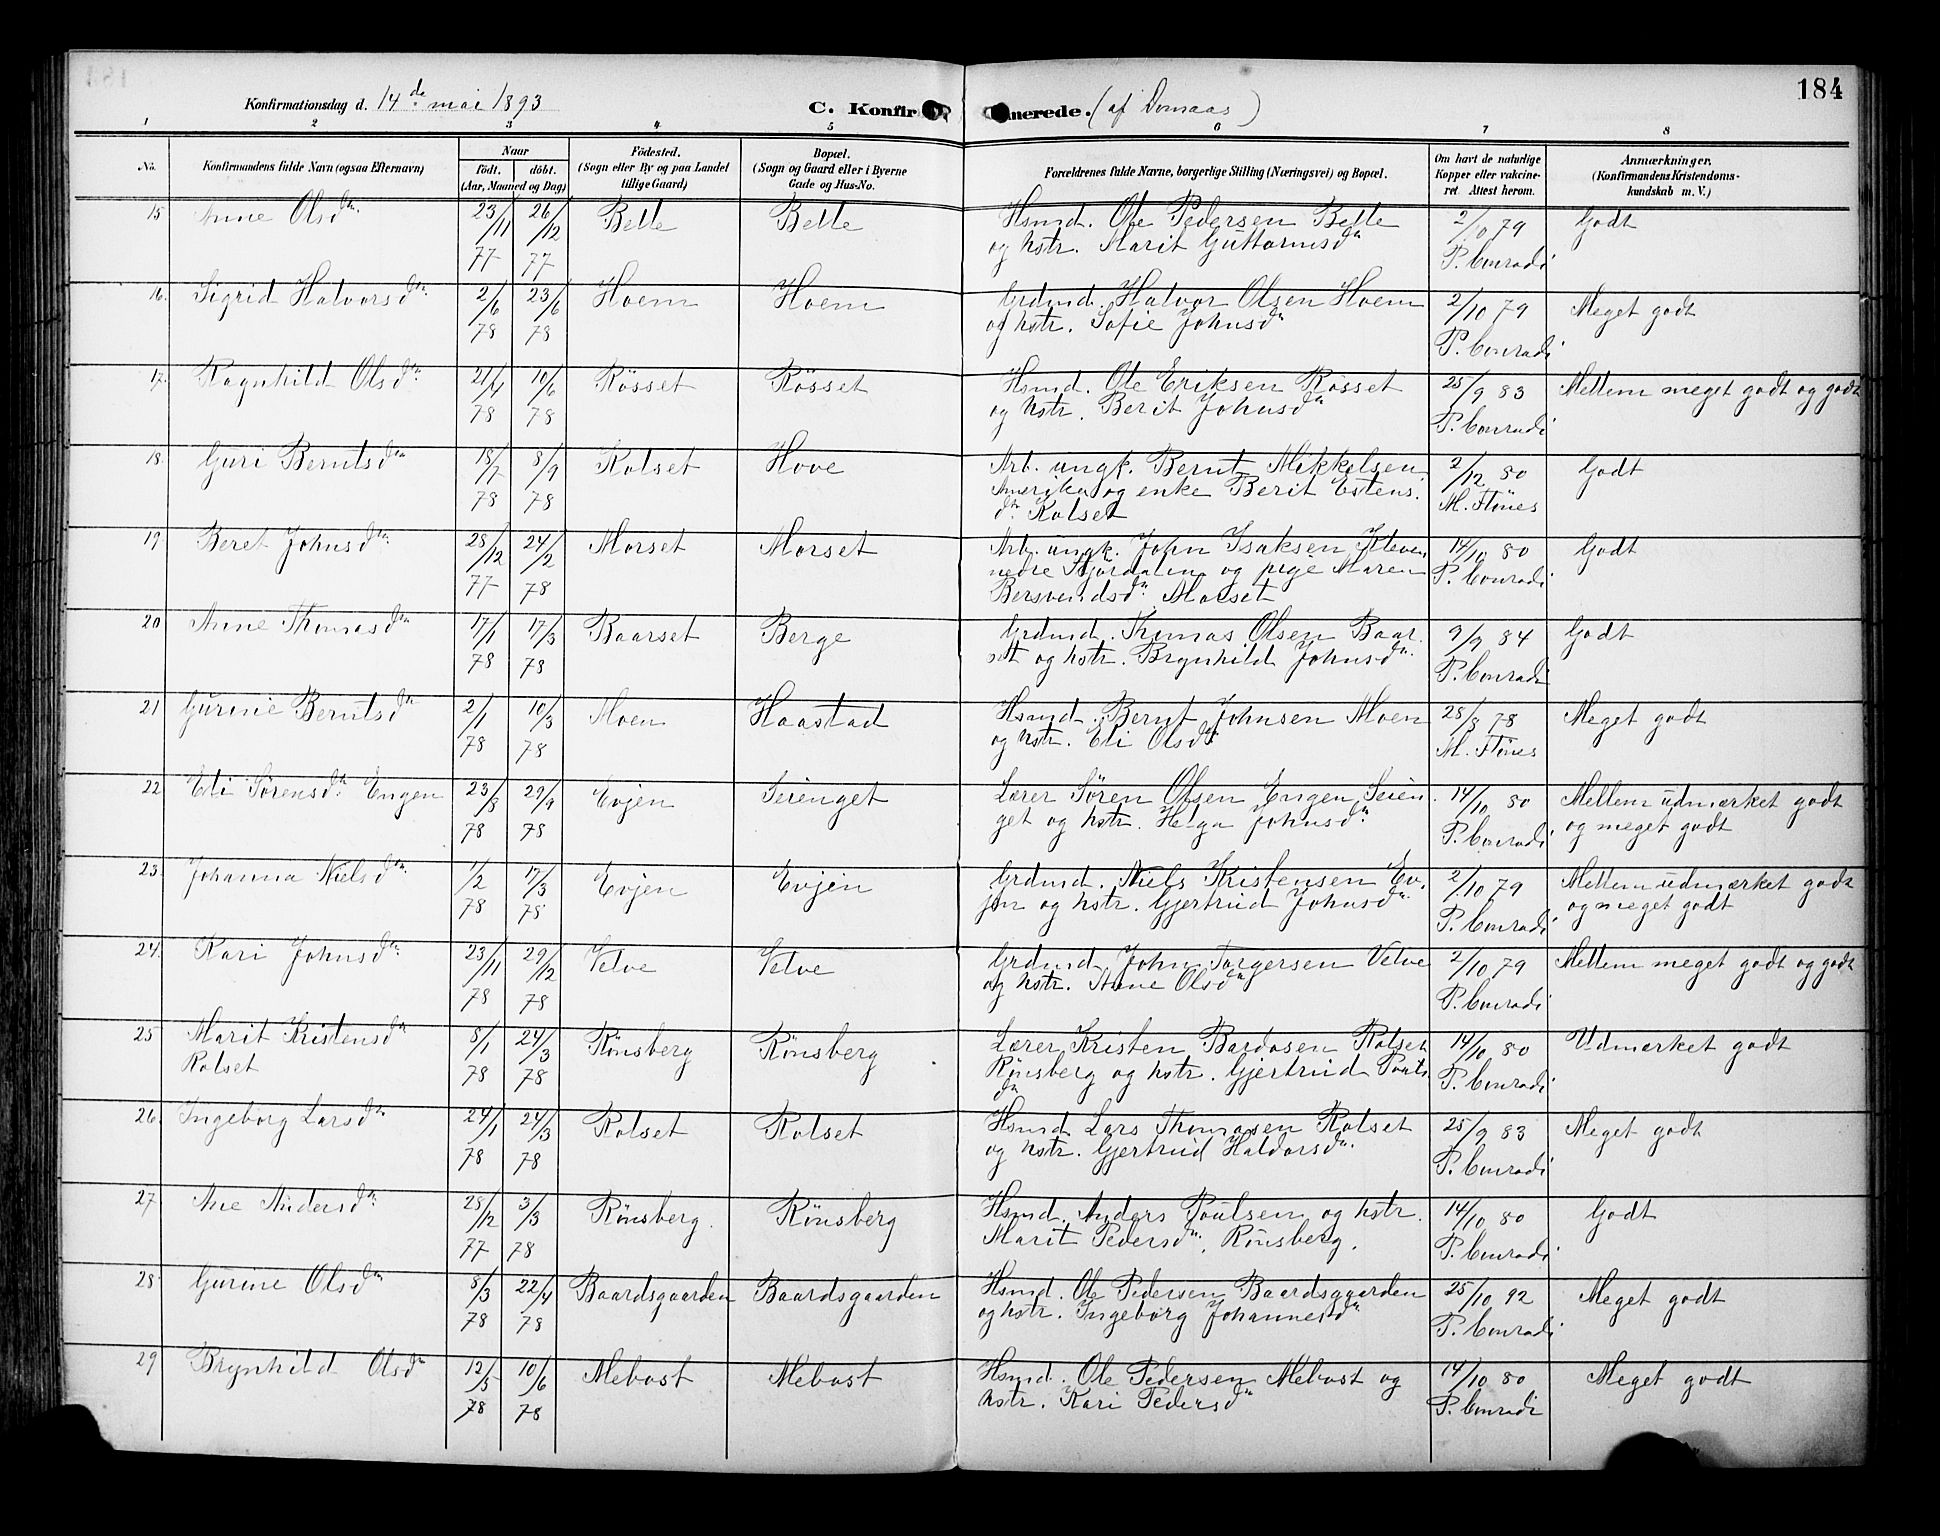 184
Konfirmationsdag d. 14de mai 1893
C. Konfirmerede. (af Domaas)
1 2 3 4 5 6 7 8
No.
Konfirmandens fulde Navn (ogsaa Efternavn)
Naar
födt. döbt.
(Aar, Maaned og Dag)
Födested.
(Sogn eller By og paa Landet
tillige Gaard)
Bopæl.
(Sogn og Gaard eller i Byerne
Gade og Hus-No.
Forældrenes fulde Navne, borgerlige Stilling (Næringsvei) og Bopæl.
Om havt de naturlige
Kopper eller vakcine-
ret. Attest herom.
Anmærkninger.
(Konfirmandens Kristendoms-
kundskab m. V.)
15 Anne Olsdtr. 23/11 77 26/12 77 Belle Belle
Hsmd. Ole Pedersen Belle
og hstr. Marit Guttormsdtr
2/10 79
P. Conradi
Godt
16. Sigrid Halvorsdtr. 2/6 78 23/6 78 Hoem Hoem
Grdmd. Halvor Olsen Hoem
og hstr. Sofie Johnsdtr
2/10 79
P. Conradi
Meget godt
17. Ragnhild Olsdtr. 21/4 78 10/6 78 Rösset Rösset
Hsmd. Ole Eriksen Rösset
og hstr. Berit Johnsdtr
25/9 83
P. Conradi
Mellem meget godt og godt
18. Guri Berntsdtr 18/7 78 8/9 78 Rolset Hove
Arb. ungk. Bernt Mikkelsen
Amerika og enke Berit Estens.
dtr Rolset
2/12 80
M. Flönes
Godt
19 Beret Johnsdtr. 28/12 77 24/2 78 Morset Morset
Arb. ungk. John Isaksen Kleven
nedre Stjördalen og pige Maren
Bersvendsdtr Morset
14/10 80
P. Conradi
Godt
20 Anne Thomasdtr 17/1 78 17/3 78 Baarset Berge
Grdmd. Thomas Olsen Baar.
set og hstr. Brynhild Johnsdtr.
9/9 84
P. Conradi
Godt
21 Gurine Berntsdtr 2/1 78 10/3 78 Moen Haastad
Hsmd. Bernt Johnsen Moen
og hstr. Eli Olsdtr
28/8 78
M. Flönes
Meget godt
22 Eli Sörensdtr. Engen 23/8 78 29/9 78 Evjen Seienget
Lærer Sören Olsen Engen Seien
get og hstr. Helga Johnsdtr
14/10 80
P. Conradi
Mellem udmærket godt
og meget godt
23. Johanna Nielsdtr. 1/2 78 17/3 78 Evjen Evjen
Grdmd. Niels Kristensen Ev.
jen og hstr. Gjertrud Johnsdtr.
2/10 79
P. Conradi
Mellem udmærket godt
og meget godt
24. Kari Johnsdtr. 23/11 78 29/12 78 Velve Velve
Grdmd. John Torgersen Velve
og hstr. Anne Olsdtr
2/10 79
P. Conradi
Mellem meget godt og godt
25 Marit Kristensdtr
Rolset
8/1 78 24/3 78 Rönsberg Rönsberg
Lærer Kristen Bardosen Rolset
Rönsberg og hstr. Gjertrud Pouls
dtr
14/10 80
P. Conradi
Udmærket godt
26. Ingeborg Larsdtr 24/1 78 24/3 78 Rolset Rolset
Hsmd Lars Thomasen Rolset
og hstr. Gjertrud Haldorsdtr.
25/9 83
P. Conradi
Meget godt
27 Ane Andersdtr. 28/12 77 3/3 78 Rönsberg. Rönsberg
Hsmd. Anders Poulsen og hstr.
Marit Pedersdtr. Rönsberg.
14/10 80
P. Conradi
Godt
28 Gurine Olsdtr 8/3 78 22/4 78 Baardsgaarden Baardsgaarden
Hsmd. Ole Pedersen Baardsgaarden
og hstr. Ingeborg Johannesdtr
25/10 92
P. Conradi
Meget godt
29 Brynhild Olsdtr 12/5 78 10/6 78 Mebost Mebost
Hsmd. Ole Pedersen Mebost og
hstr. Kari Pedersdtr
14/10 80
P. Conradi
Meget godt